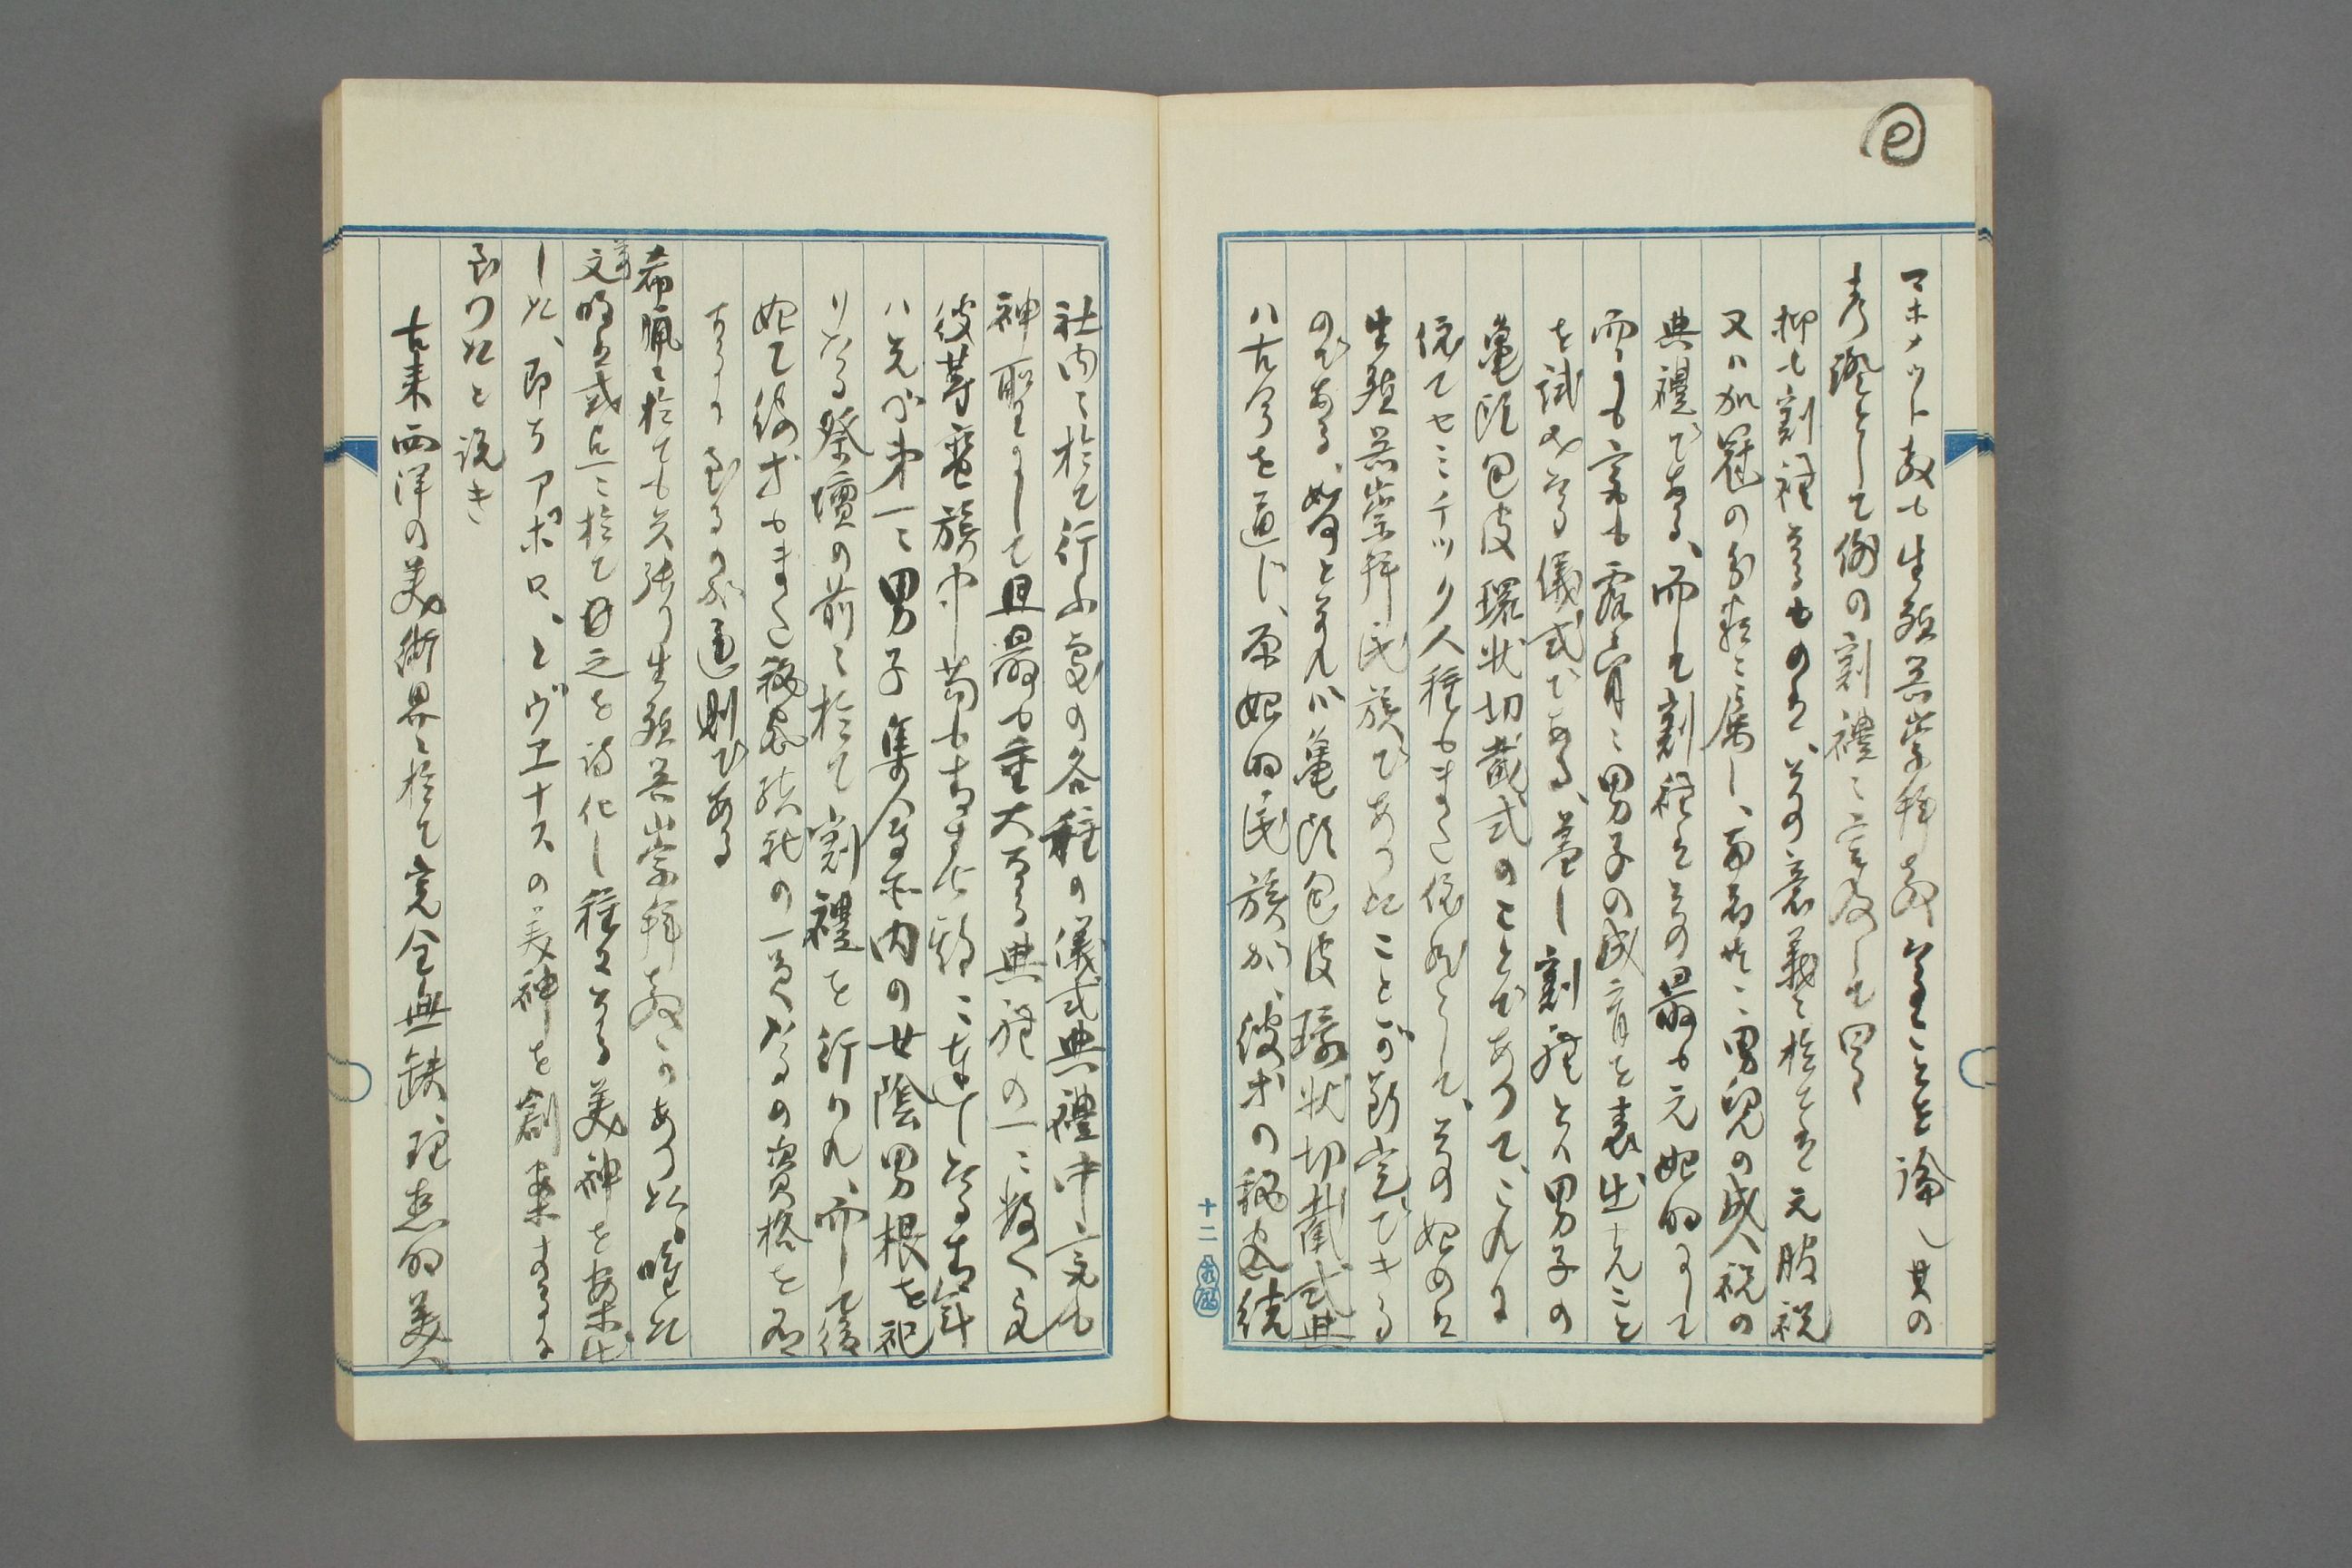 マホメット教も生殖器崇拝教なることを論じ其の
考證として例の割禮に言及して曰く
抑も割禮なるものは、其の意義に於ては元服祝
又は加冠の分類に属し、両者共に男児の成人祝の
典禮である、而して割禮は其の最も元始的にして
而かも露骨に男子の成育を表出せんこと
を試みたる儀式である、蓋し割禮とは男子の
亀頭包皮環状切截式のことであつて、これに
依てセミチック人種もまた依然として、其の始めは
生殖器崇拝民族であつたことが断定できる
のである、如何となれば亀頭包皮環状切截式典
は古今を通じ、原始的民族が、彼等の秘密結
社内に於て行ふ處の各種の儀式典禮中最も
神聖にして且最も重大なる典禮の一に数へ
彼等蛮族中苟も丁年に達したる青年
は先づ第一に男子集会所内の女陰男根を祀
りたる祭壇の前に於て割禮を行はれ、而して後
始て彼等もまた秘密結社の一員たるの資格を有
するに至るのが通則である
希臘に於ても矢張り生殖器崇拝教があつた、唯だ
文明は或点に於て之を詩化し種々なる美神を案出
した、即ちアポロ、とヴェナスの美神を創案するに
至つたと説き
古来西洋の美術界に於て完全無缺理想的美人
十二